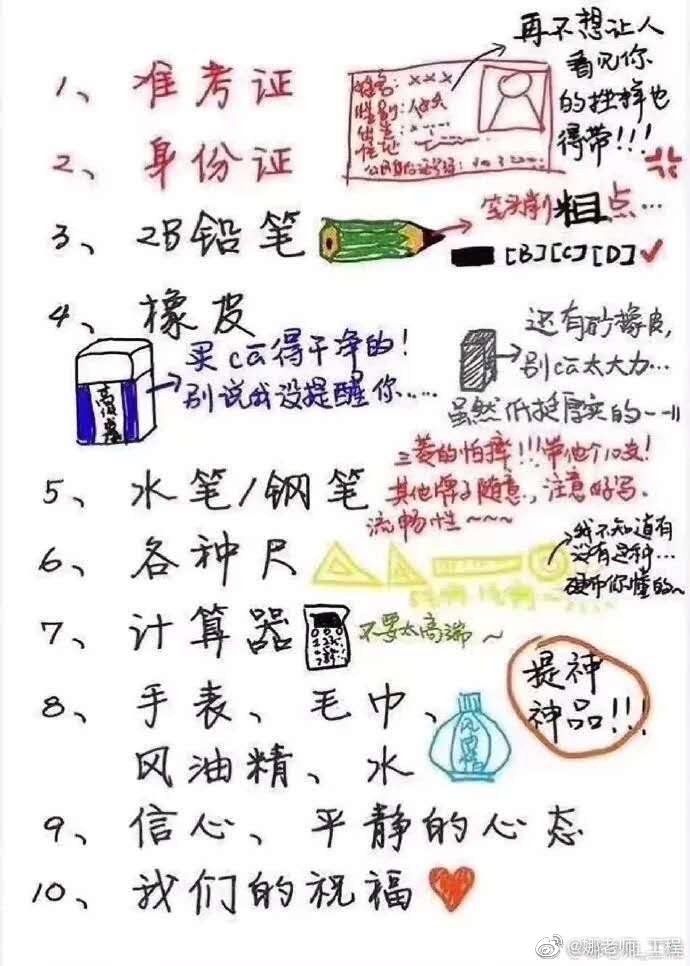 1、准考证
姓名: xxx
性别:
住址
再不想让人
看见你
的挫样也
得带!!!
2、身份证
3、2B铅笔
笔头削粗点…
[B][C][D]✓
4、橡皮
买ca得干净的!
别说我没提醒你……
还有砂橡皮,
别ca太大力…
虽然纸挺厚实的--||
5、水笔/钢笔
三菱的怕摔!!!带他个10支!
其他牌子随意,注意好写、
流畅性~~~
6、各种尺
我不知道有
没有这种…
硬币你懂的~
7、计算器
不要太高端~
8、手表、毛巾、
风油精、水
风油精
提神
神品!!!
9、信心、平静的心态
10、我们的祝福
@娜老师_工程